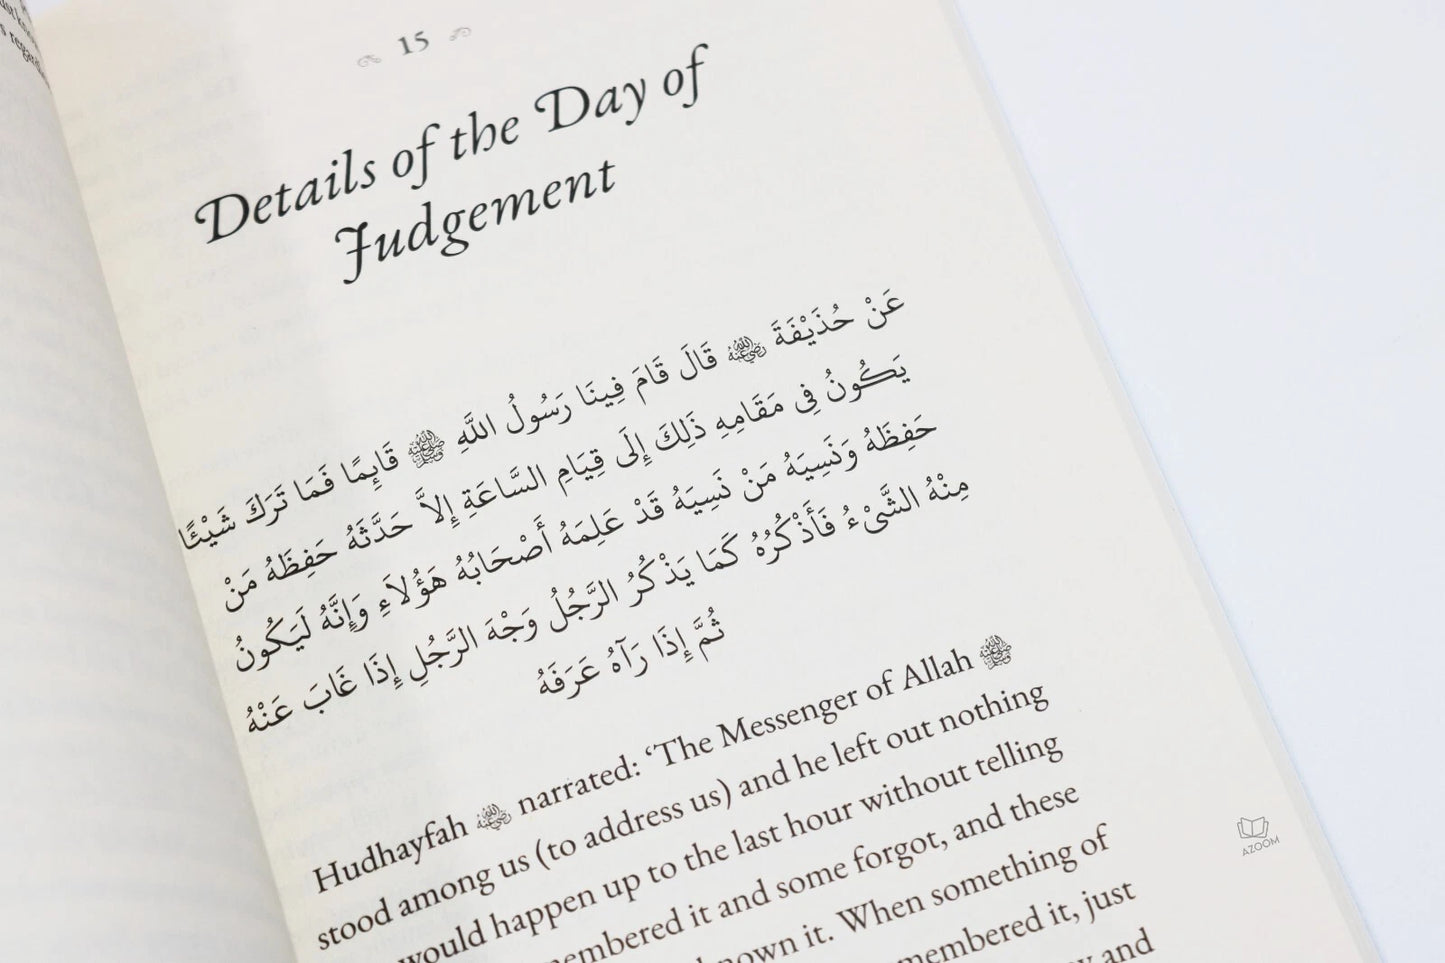 15
Details of the Day of
Judgement
عَنْ حُذَيْفَةَ ﵁ قَالَ قَامَ فِينَا رَسُولُ اللَّهِ ﷺ قَائِمًا فَمَا تَرَكَ شَيْئًا
يَكُونُ فِي مَقَامِهِ ذَلِكَ إِلَى قِيَامِ السَّاعَةِ إِلاَّ حَدَّثَهُ حَفِظَهُ مَنْ
حَفِظَهُ وَنَسِيَهُ مَنْ نَسِيَهُ قَدْ عَلِمَهُ أَصْحَابُهُ هَؤُلَاءِ وَإِنَّهُ لَيَكُونُ
مِنْهُ الشَّىْءُ فَأَذْكُرُهُ كَمَا يَذْكُرُ الرَّجُلُ وَجْهَ الرَّجُلِ إِذَا غَابَ عَنْهُ
ثُمَّ إِذَا رَآهُ عَرَفَهُ
Hudhayfah ﵁ narrated: ‘The Messenger of Allah ﷺ
stood among us (to address us) and he left out nothing
would happen up to the last hour without telling
membered it and some forgot, and these
nown it. When something of
membered it, just
and
AZOOM